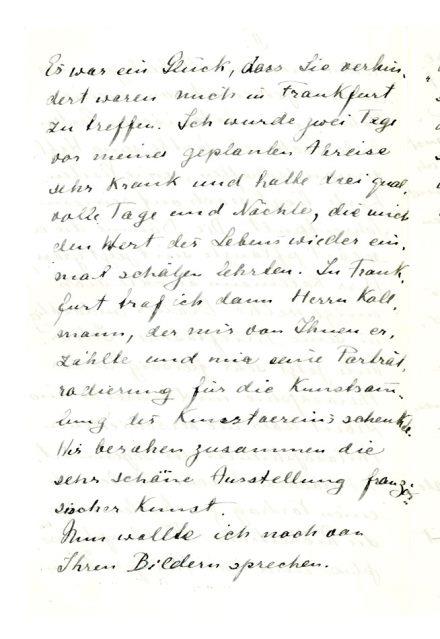 Es war ein Glück, dass Sie verhin-
dert waren mich in Frankfurt
zu treffen. Ich wurde zwei Tage
vor meiner geplanten Abreise
sehr krank und hatte drei qual-
volle Tage und Nächte, die mich
den Wert des Lebens wieder ein-
mal schätzen lehrten. In Frank-
furt traf ich dann Herrn Kall-
mann, der mir von Ihnen er-
zählte und mir seine Porträt-
radierung für die Kunstsam-
lung des Kunstvereins schenkte.
Wir besahen zusammen die
sehr schöne Ausstellung franzö-
sischer Kunst.
Nun wollte ich noch von
Ihren Bildern sprechen.